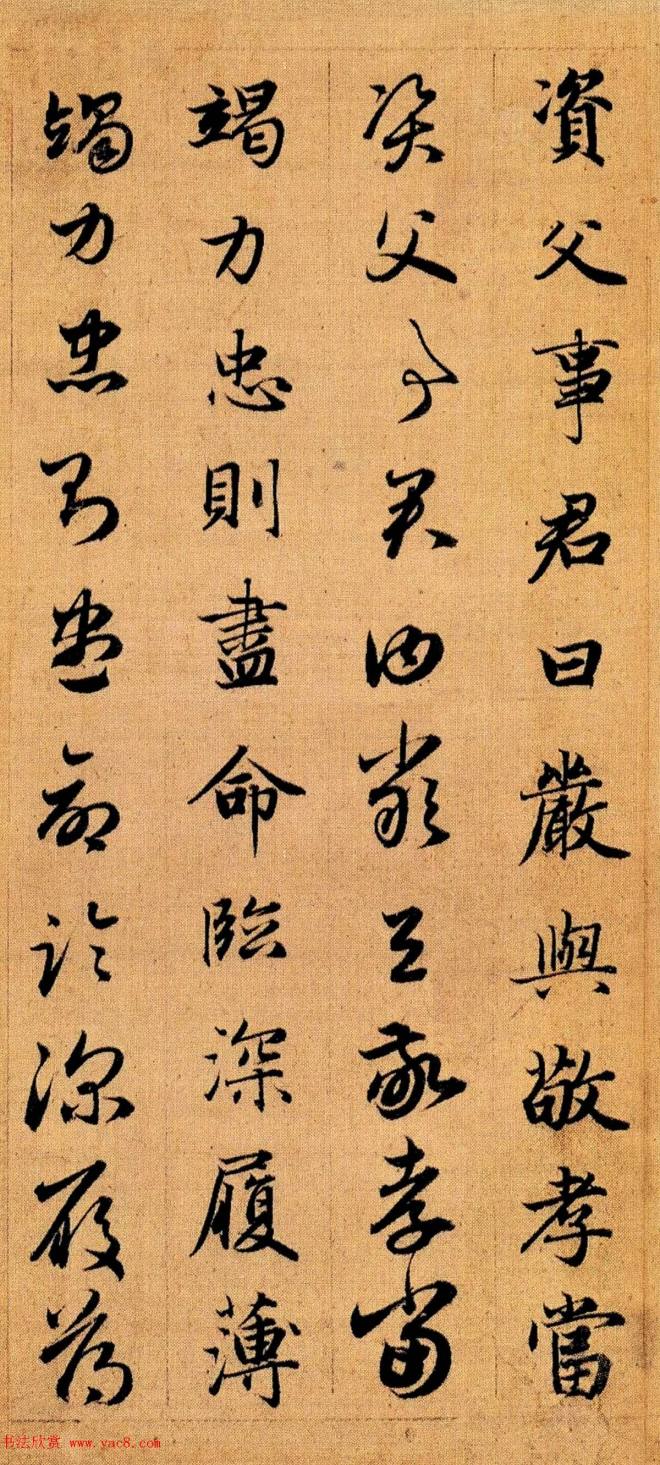 資父事君曰嚴與敬孝當
資父事君曰嚴與敬孝當
竭力忠則盡命臨深履薄
竭力忠則盡命臨深履薄
书法欣赏 www.yac8.com